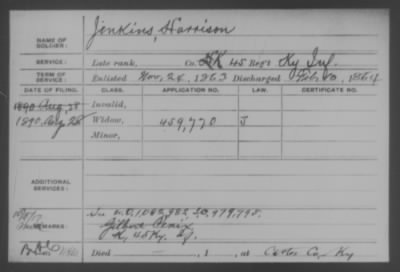 NAME OF SOLDIER: Jenkins, Harrison
SERVICE: Late rank, Co. K 45 Reg't Ky Inf.
TERM OF SERVICE: Enlisted Nov. 24, 1863 Discharged Feb. 1864
DATE OF FILING. CLASS. APPLICATION NO. LAW. CERTIFICATE NO.
1890 Aug 28 Invalid,
1890 Aug 28 Widow, 459,770 J
Minor,
ADDITIONAL SERVICES:
REMARKS: See C.O. 1,062,982
K, 45 Ky. Inf.
Died , 1 , at Carter Co., Ky